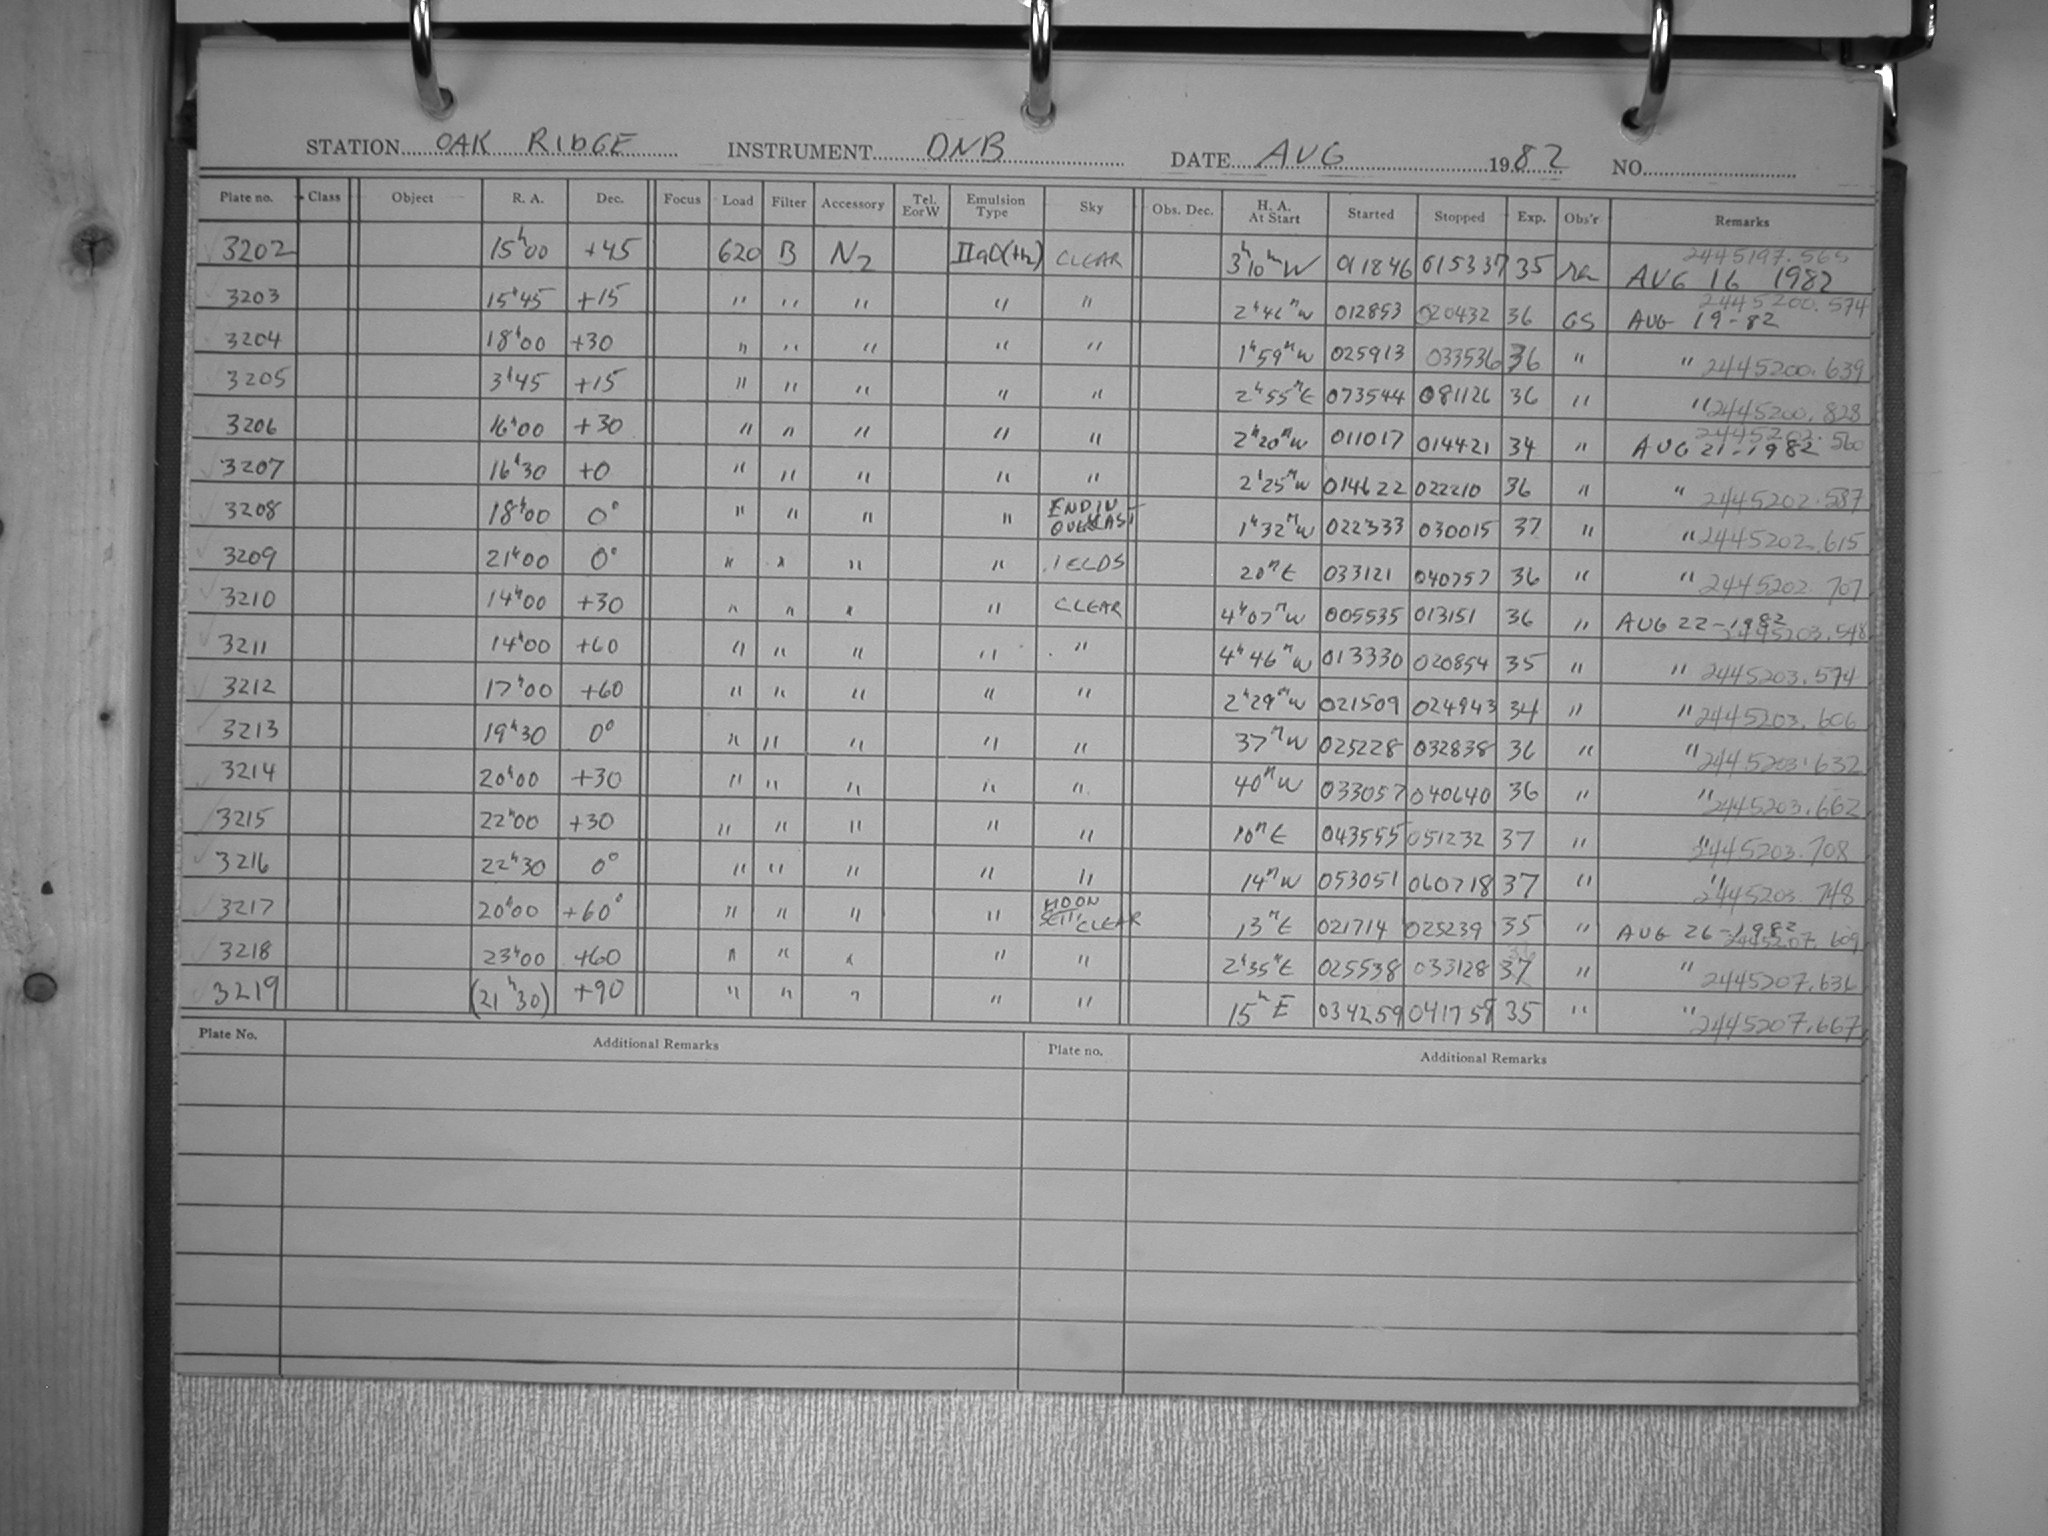 STATION OAK RIDGE INSTRUMENT DNB DATE AUG 1982 NO.
Plate no. Class Object R. A. Dec. Focus Load Filter Accessory Tel. EorW Emulsion Type Sky Obs. Dec. H. A. At Start Started Stopped Exp. Obs'r Remarks
3202 15h00 +45 620 B N2 IIaO(H2) CLEAR 3h10mW 011846 015337 35 2445197.565 AUG 16 1982
3203 15h45 +15 " " " " " 2h46mW 012853 020432 36 GS 2445200.574 AUG 19-82
3204 18h00 +30 " " " " " 1h59mW 025913 033536 36 " " 2445200.639
3205 3h45 +15 " " " " " 2h55mE 073544 081126 36 " " 2445200.828
3206 16h00 +30 " " " " " 2h20mW 011017 014421 34 " 2445202.560 AUG 21-1982
3207 16h30 +0 " " " " " 2h25mW 014622 022210 36 " " 2445202.587
3208 18h00 0° " " " " END IN OVERCAST 1h32mW 022333 030015 37 " " 2445202.615
3209 21h00 0° " " " " 20mE 033121 040757 36 " " 2445202.707
3210 14h00 +30 " " " " CLEAR 4h07mW 005535 013151 36 " AUG 22-1982 2445203.548
3211 14h00 +60 " " " " " 4h46mW 013330 020854 35 " " 2445203.574
3212 17h00 +60 " " " " " 2h29mW 021509 024943 34 " " 2445203.606
3213 19h30 0° " " " " " 37mW 025228 032838 36 " " 2445203.632
3214 20h00 +30 " " " " " 40mW 033057 040640 36 " " 2445203.662
3215 22h00 +30 " " " " " 10mE 043555 051232 37 " " 2445203.708
3216 22h30 0° " " " " " 14mW 053051 060718 37 " " 2445203.748
3217 20h00 +60° " " " " MOON CLEAR 13mE 021714 025239 35 " AUG 26-1982 2445207.609
3218 23h00 +60 " " " " " 2h35mE 025538 033128 37 " " 2445207.636
3219 (21h30) +90 " " " " " 15hE 034259 041758 35 " " 2445207.667
Plate No. Additional Remarks Plate no. Additional Remarks